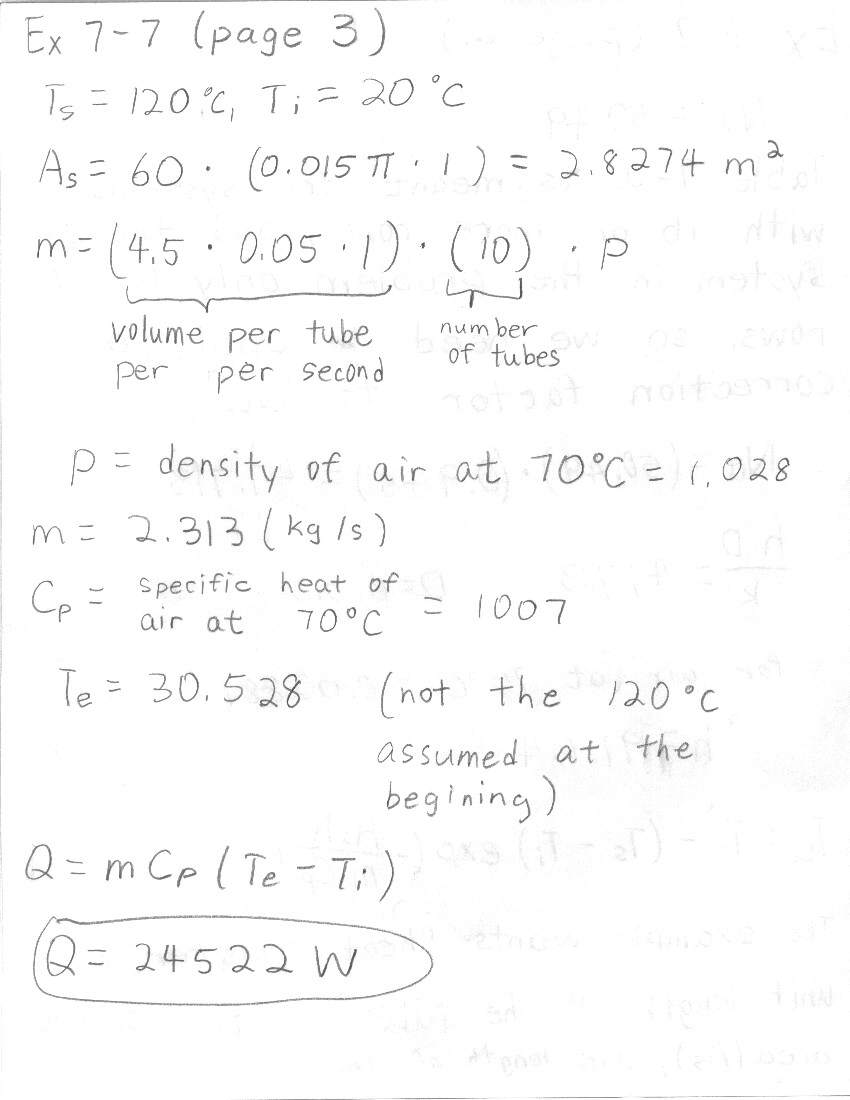 Ex 7-7 (page 3)
Ts = 120°C, Ti = 20°C
As = 60 · (0.015π · 1) = 2.8274 m²
m = (4.5 · 0.05 · 1) · (10) · ρ
volume per tube per per second
number of tubes
ρ = density of air at 70°C = 1.028
m = 2.313 (kg/s)
Cp = specific heat of air at 70°C = 1007
Te = 30.528 (not the 120°C
assumed at the
begining)
Q = m Cp (Te - Ti)
Q = 24522 W